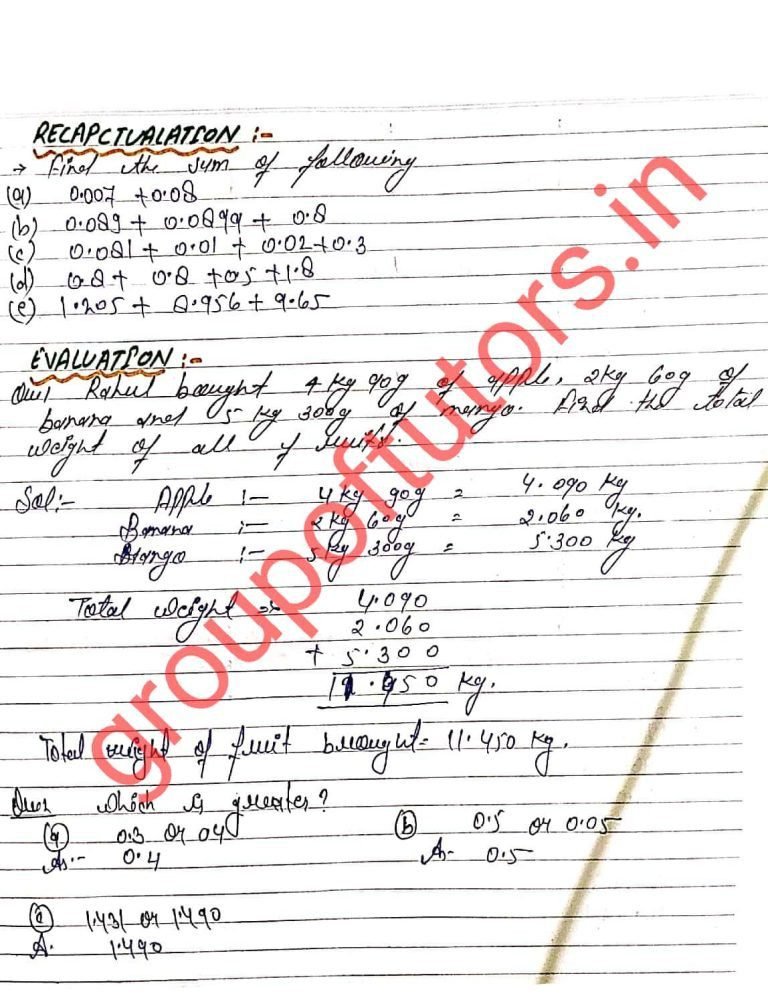 RECAPCTUALATION :-
→ Find the sum of following
(a) 0.007 + 0.08
(b) 0.089 + 0.0899 + 0.8
(c) 0.081 + 0.01 + 0.02 + 0.3
(d) 0.8 + 0.8 + 0.5 + 1.8
(e) 1.205 + 8.956 + 9.65
EVALUATION :-
Que1 Rahul bought 4 kg 90g of apple, 2kg 60g of
banana and 5 kg 300g of mango. Find the total
weight of all of fruits.
Sol:- Apple :- 4kg 90g = 4.090 kg
Banana :- 2kg 60g = 2.060 kg.
Mango :- 5kg 300g = 5.300 kg
Total weight =
4.090
2.060
+ 5.300
11.450 kg.
Total weight of fruit brought = 11.450 kg.
Que2 which is greater?
(a) 0.3 or 04 (b) 0.5 or 0.05
As:- 0.4 A- 0.5
1.431 or 1.490
A. 1.490
groupoftutors.in